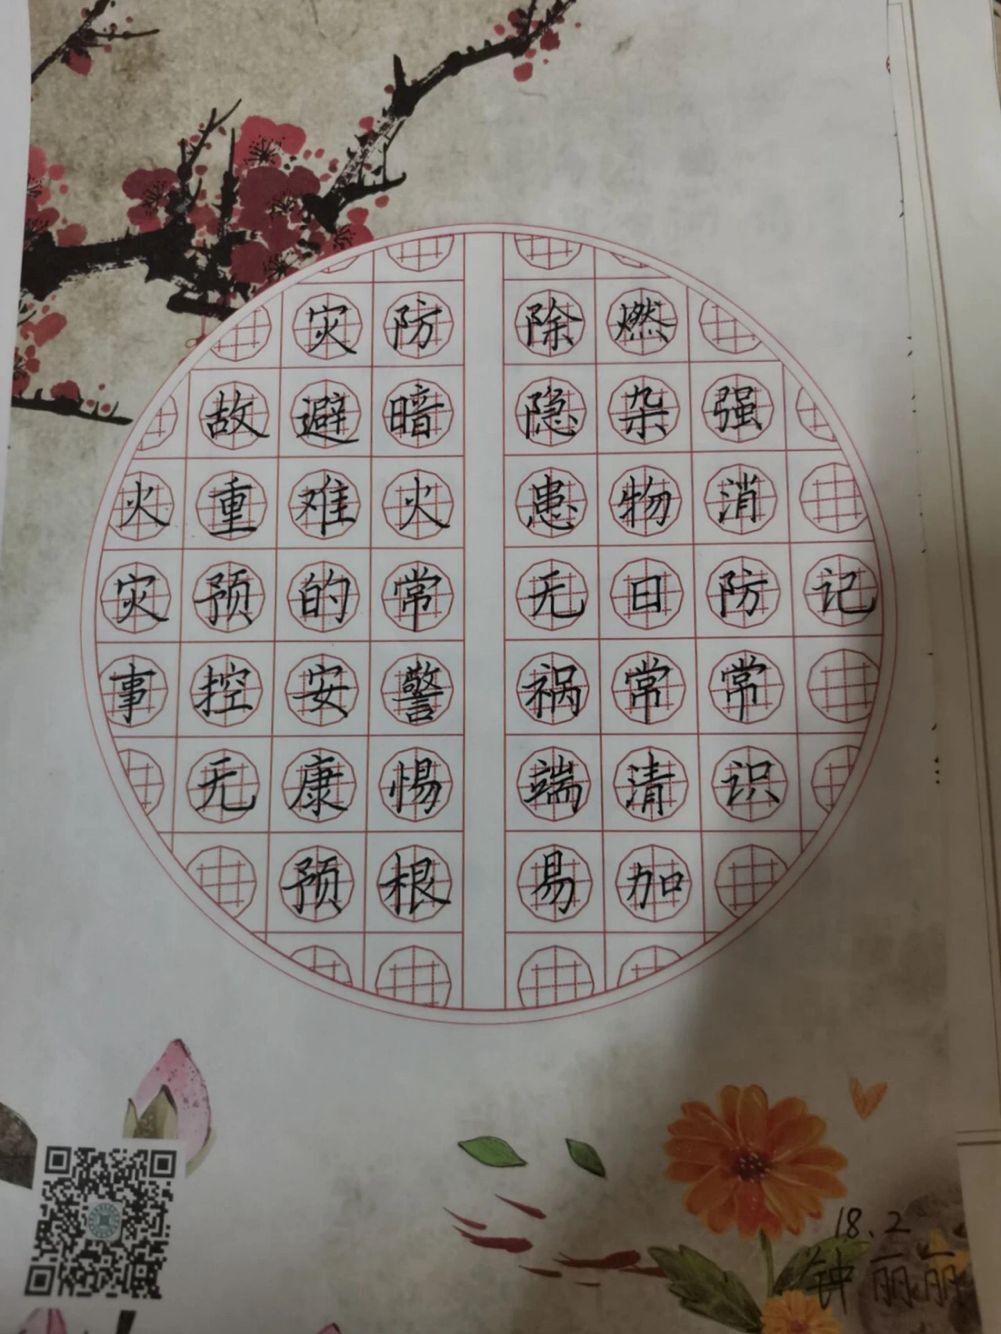 记
强消防常识
燃杂物日常清加
除隐患无祸端易
防暗火常警惕根
灾避难的安康预
故重预控无
火灾事
18.2
钟丽丽